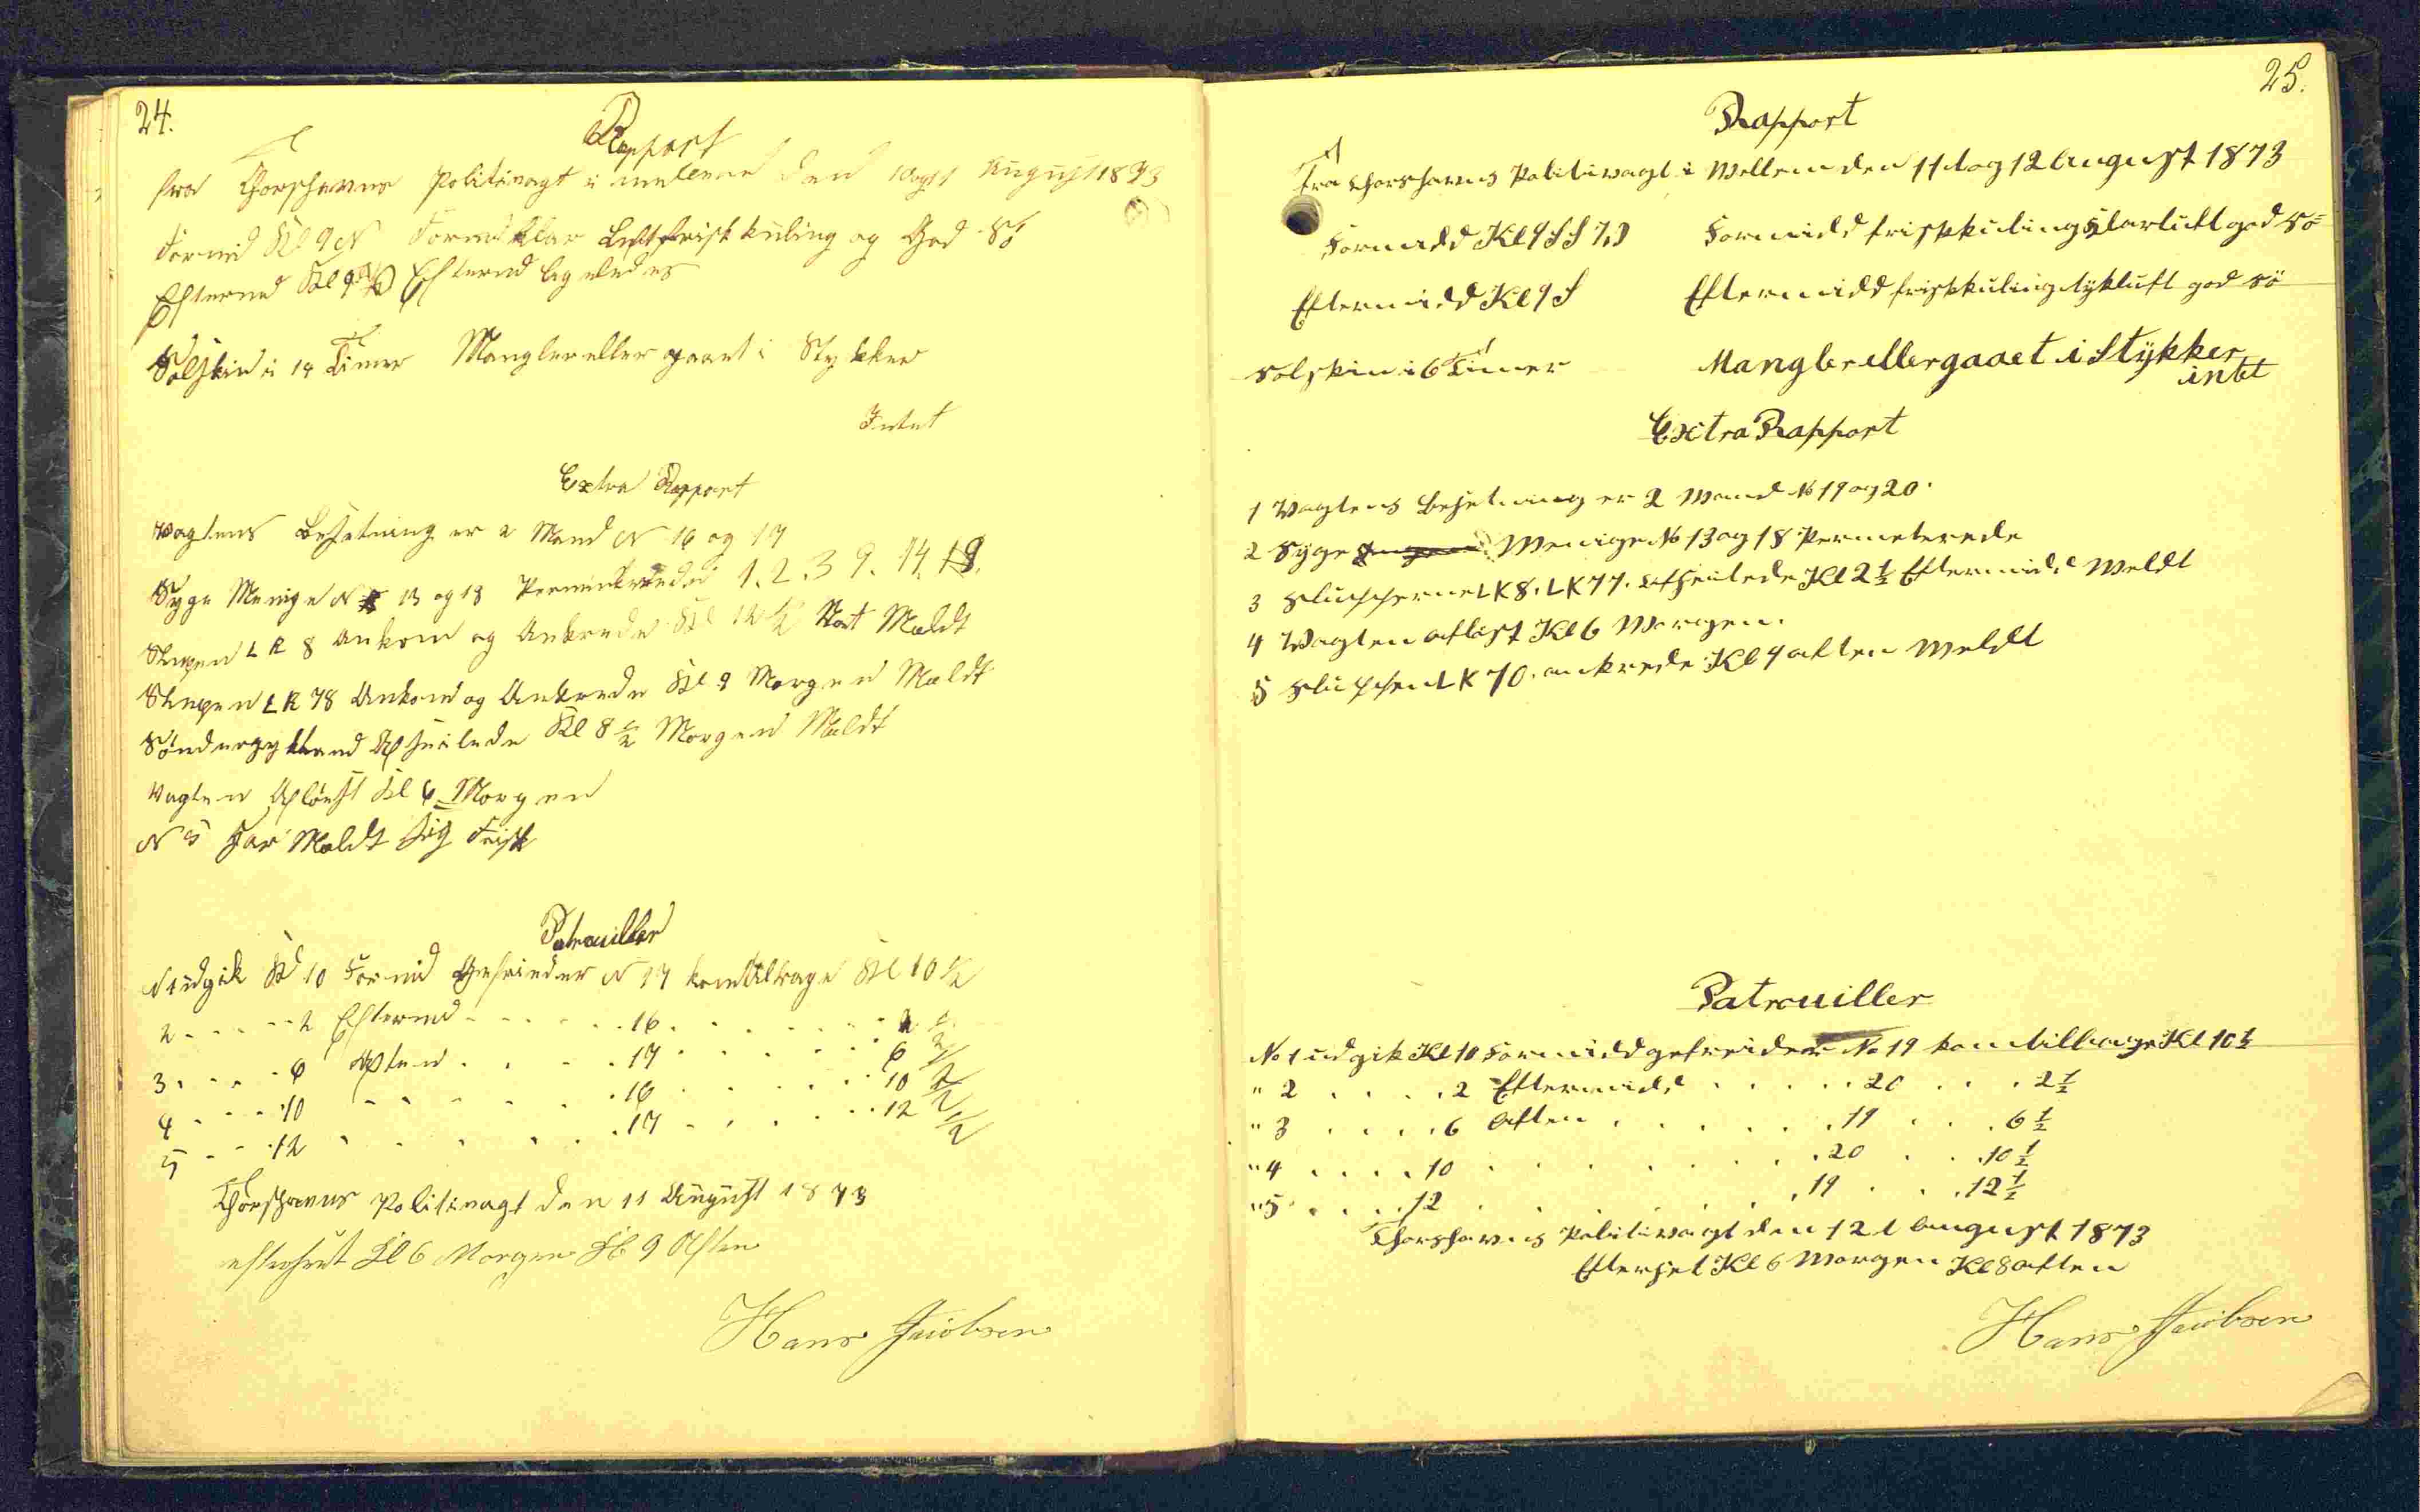 24.
Rapport
fra Thorshavns Politivagt i mellem den 10 og 11 August 1873
Formid Kl 9 N Formid klar Luft frisk kuling og God Sö
Eftermd Kl 9 Eftermd ligeledes
Solskin i 14 Timer Mangler eller gaaet i Stykker
Intet
Extra Rapport
Vagtens Besetning er 2 Mand N 16 og 17
Syge Menige N 13 og 18 Permenterede 1. 2. 3 9. 14. 18.
Slupen L K 8 Ankom og Ankrede Kl 12 1/2 Nat Mældt
Slupen L K 78 Ankom og Ankrede Kl 9 Morgen Mældt
Afseilede Kl 8 1/2 Morgen Mældt
Vagten Aflöst Kl 6 Morgen
N 5 har Mældt sig Frisk
Patrouiller
N 1 udgik Kl 10 Formid Gefreider N 17 kom tilbage Kl 10 1/2
2 - - - - - 2 Eftermd - - - - - - 16 . - - - - - - 2 1/2
3 . - - - 6 Aften . . - . 17 . - - - - - 6 1/2
4 - - - 10 - - - - - . 16 . . . - - - 10 1/2
5 - - . 12 . . . . . . 17 - . . . . . 12 1/2
Thorshavns Politivagt den 11 August 1873
efterseet Kl 6 Morgen Kl 9 Aften
Hans Jacobsen
25.
Rapport
Fra Thorshavns Politivagt i Mellem den 11 t og 12 August 1873
Formidd Kl 9 Formidd friskkuling klarluft god sö
Eftermidd Kl 9 S Eftermidd friskkuling tykluft god sö
Solskin i 6 Timer Mangler eller gaaet i Stykker
intet
Extra Rapport
1 Vagtens Besetning er 2 Mand No 19 og 20.
2 Syge Menige No 13 og 18 Permeterede
3 Slupperne L K 8. L K 77. afseilede Kl 2 1/2 Eftermidd Meldt
4 Vagten aflöst Kl 6 Morgen.
5 Sluppen L K 70. ankrede Kl 9 aften Meldt
Patrouiller
No 1 udgik Kl 10 Formidd gefreider No 19 kom tilbage Kl 10 1/2
" 2 . . . . 2 Eftermidd . . . . . 20 . . . 2 1/2
" 3 . . . . 6 Aften . . . . . . 19 . . . 6 1/2
" 4 . . . . 10 . . . . . . . . 20 . . . 10 1/2
" 5 . . . . 12 . . . . . . . 19 . . . 12 1/2
Thorshavns Politivagt den 12 t August 1873
Efterset Kl 6 Morgen Kl 8 aften
Hans Jacobsen